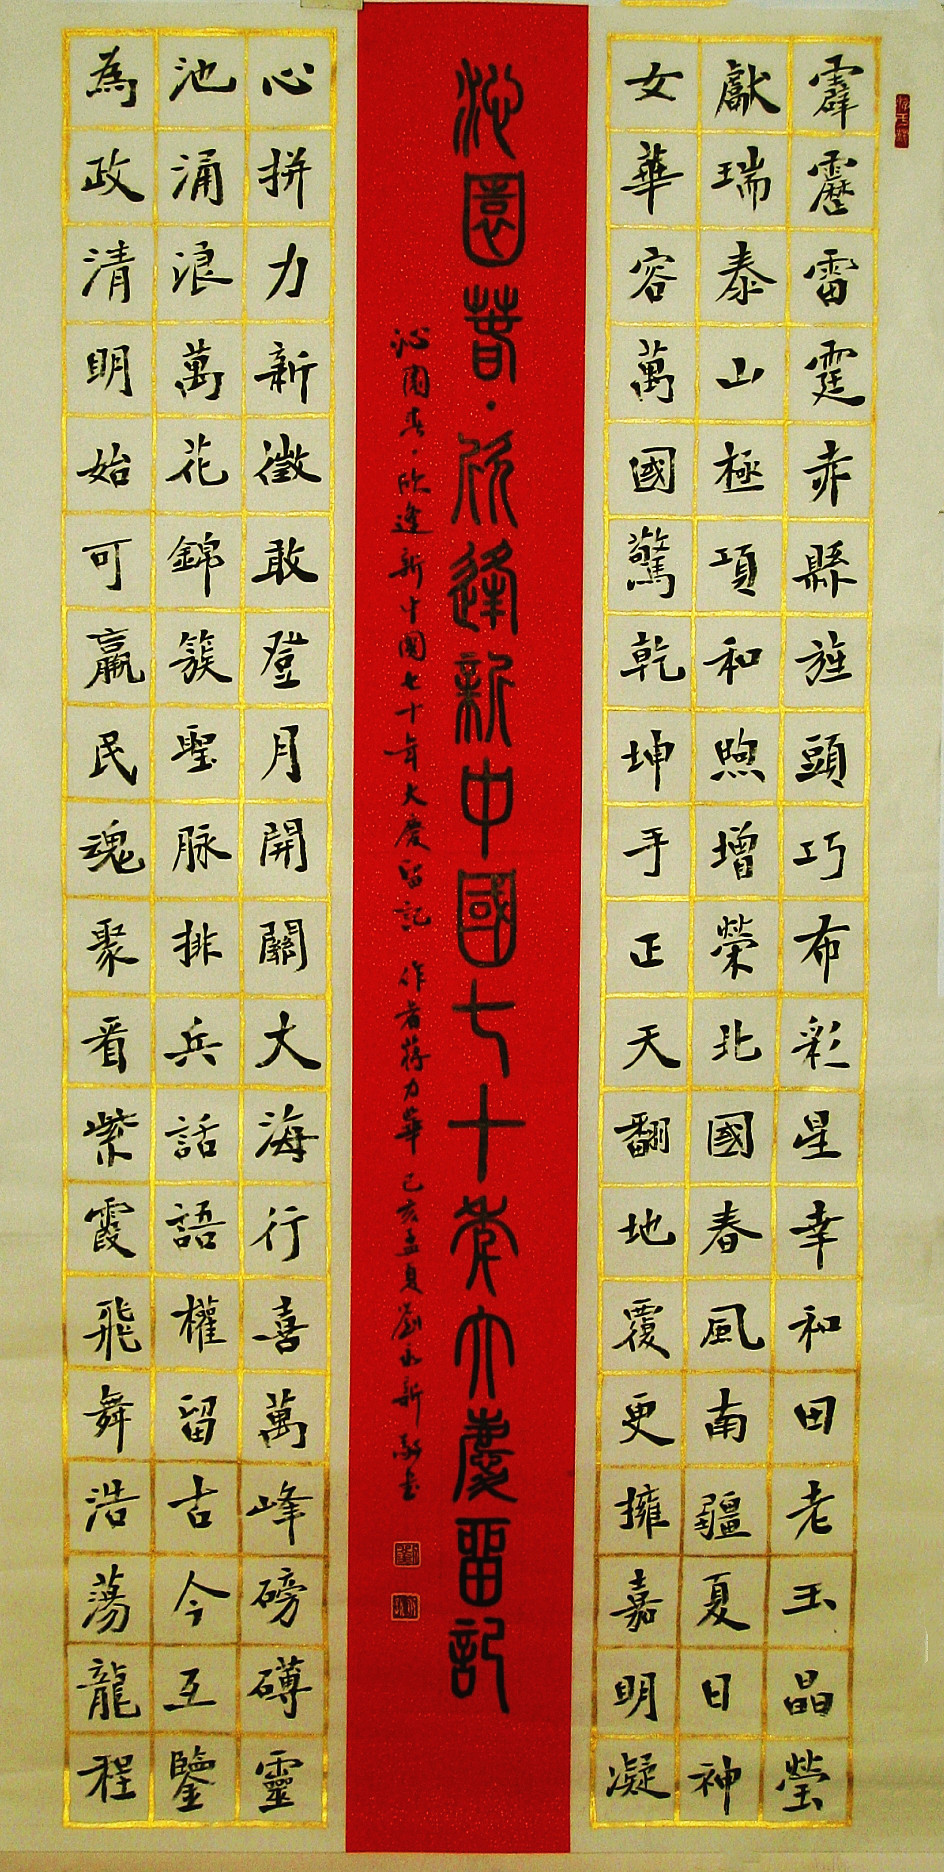 霹靂雷霆赤縣旌頭巧布彩星幸和田老玉晶瑩
獻瑞泰山極頂和煦增榮北國春風南疆夏日神
女華容萬國驚乾坤手正天翻地覆更擁嘉明凝
沁園春·欣逢新中國七十年大慶留記
沁園春·欣逢新中國七十年大慶留記 作者蔣力華 己亥孟夏劉永新敬書
心拼力新徵敢登月開關大海行喜萬峰磅礴靈
池涌浪萬花錦簇聖脉排兵話語權留古今互鑒
為政清明始可贏民魂聚看紫霞飛舞浩蕩龍程